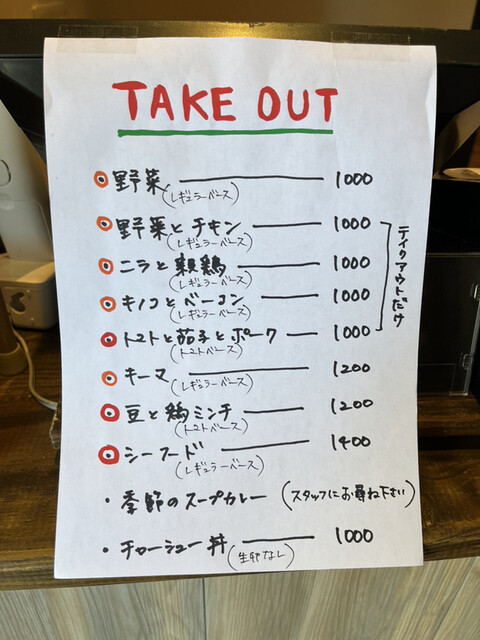 TAKE OUT
野菜 1000
(レギュラーベース)
野菜とチキン 1000
(レギュラーベース)
ニラと親鶏 1000
(レギュラーベース)
キノコとベーコン 1000
(レギュラーベース)
トマトと茄子とポーク 1000
(トマトベース)
テイクアウトだけ
キーマ 1200
(レギュラーベース)
豆と鶏ミンチ 1200
(トマトベース)
シーフード 1400
(レギュラーベース)
・季節のスープカレー (スタッフにお尋ね下さい)
・チャーシュー丼 1000
(生卵なし)